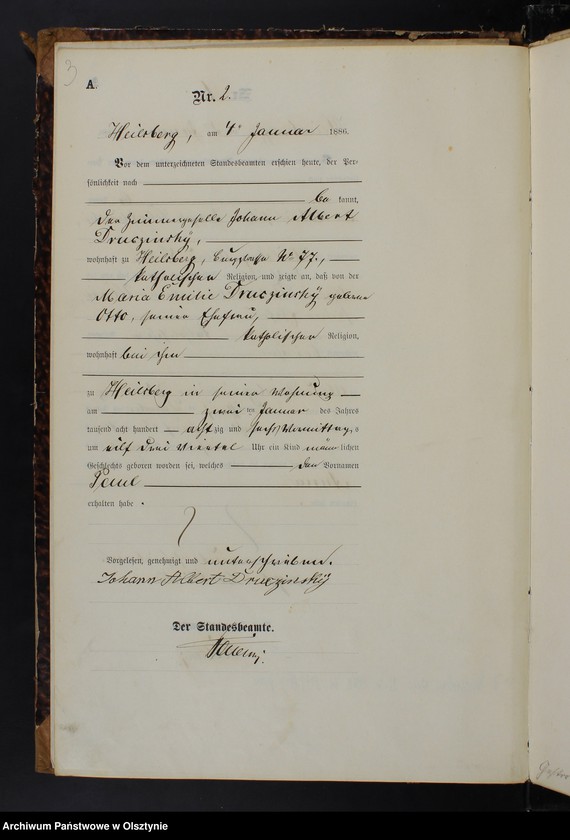 3
A.
Nr. 2.
Heilsberg, am 4ten Januar 1886.
Vor dem unterzeichneten Standesbeamten erschien heute, der Per-
sönlichkeit nach
be kannt,
der Zimmergeselle Johann Albert
Druczinsky,
wohnhaft zu Heilsberg, Burgstraße No 77.,
katholischer Religion, und zeigte an, daß von der
Maria Emilie Druczinsky geborene
Otto, seiner Ehefrau,
katholischer Religion,
wohnhaft bei ihm
zu Heilsberg in seiner Wohnung
am zwei ten Januar des Jahres
tausend acht hundert acht zig und sechs Vormittags
um elf drei Viertel Uhr ein Kind männ lichen
Geschlechts geboren worden sei, welches den Vornamen
Paul
erhalten habe.
Vorgelesen, genehmigt und unterschrieben.
Johann Albert Druczinsky
Der Standesbeamte.
Archiwum Państwowe w Olsztynie